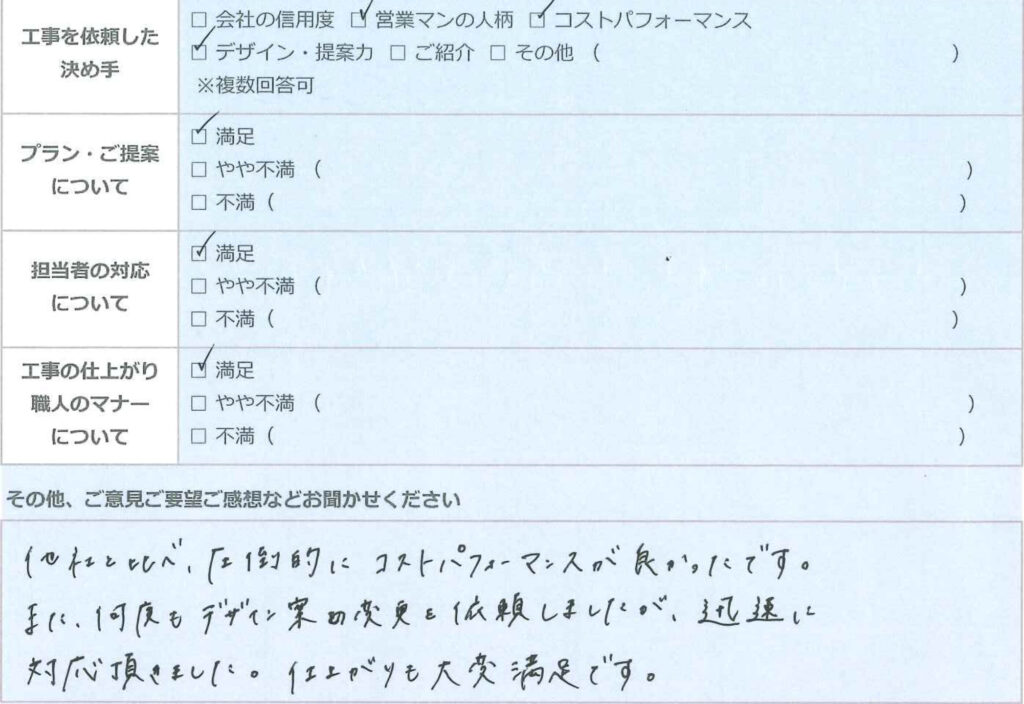 工事を依頼した
決め手
□ 会社の信用度 ☑ 営業マンの人柄 ☑ コストパフォーマンス
☑ デザイン・提案力 □ ご紹介 □ その他（ ）
※複数回答可
プラン・ご提案
について
☑ 満足
□ やや不満（ ）
□ 不満（ ）
担当者の対応
について
☑ 満足
□ やや不満（ ）
□ 不満（ ）
工事の仕上がり
職人のマナー
について
☑ 満足
□ やや不満（ ）
□ 不満（ ）
その他、ご意見ご要望ご感想などお聞かせください
他社と比べ、圧倒的にコストパフォーマンスが良かったです。
また、何度もデザイン案の変更を依頼しましたが、迅速に
対応頂きました。仕上がりも大変満足です。